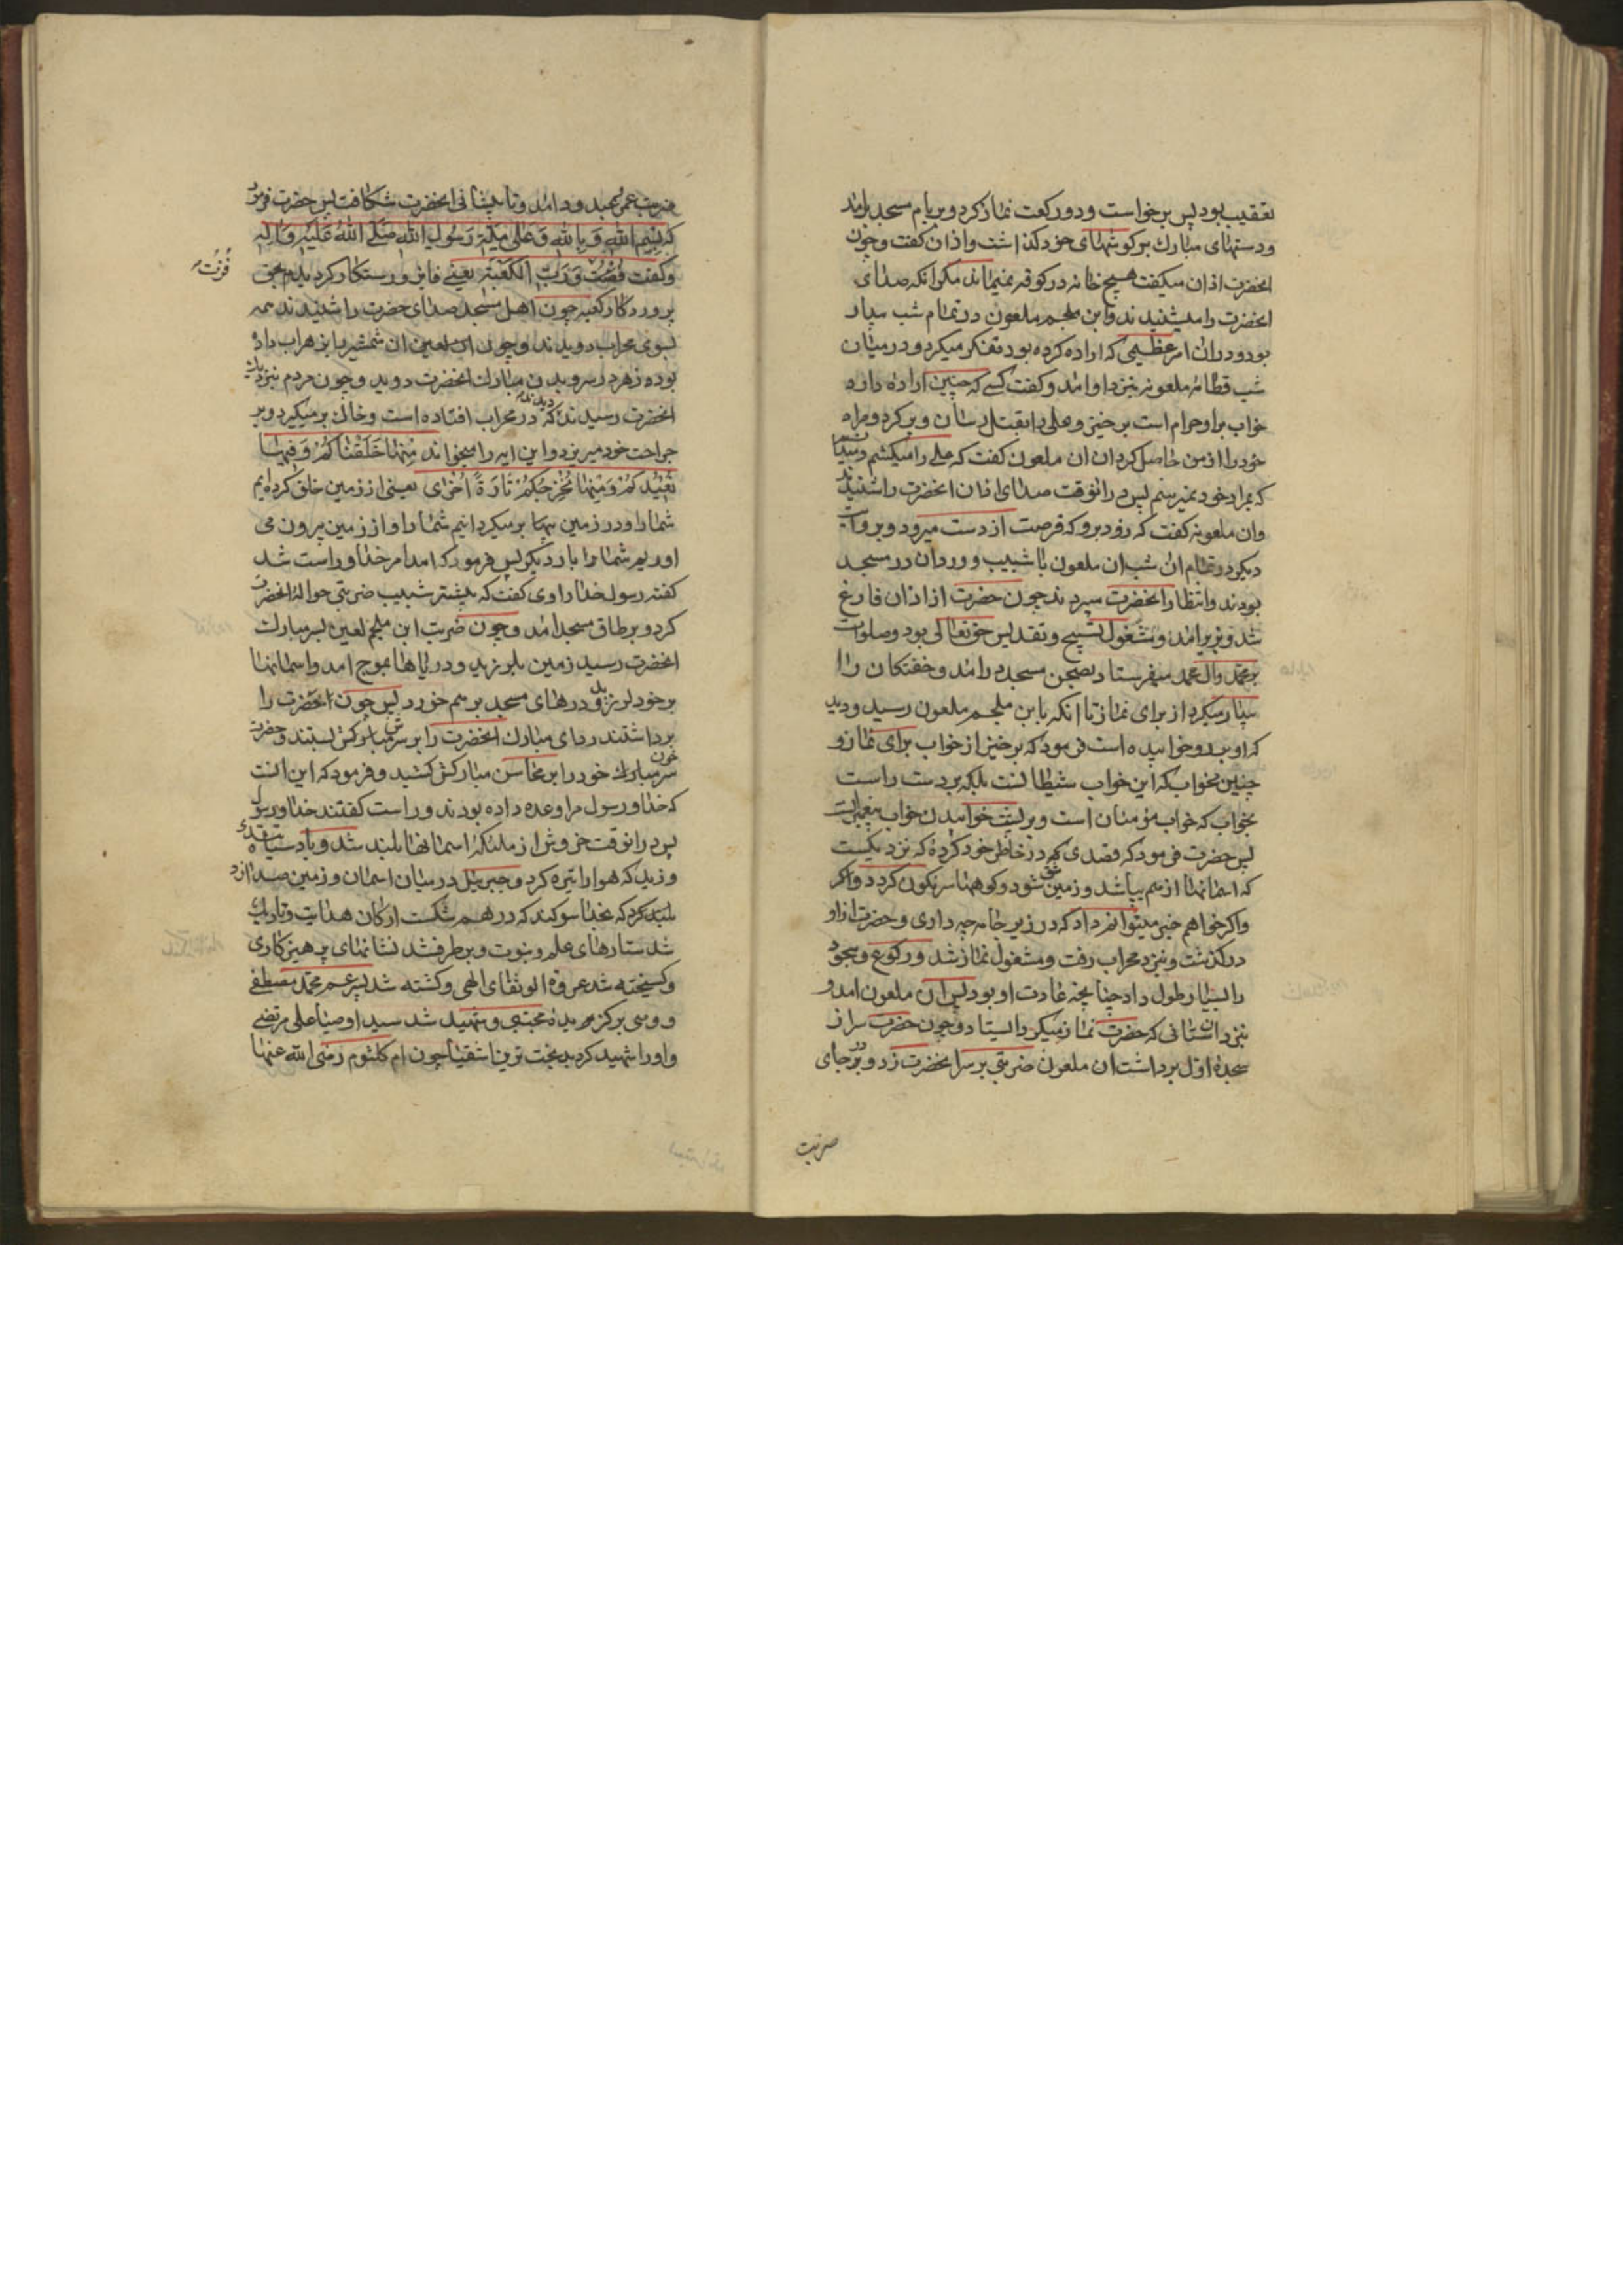 تعقیب بود پس برخواست و دو رکعت نماز کرد و بر بام مسجد برامد
و دستهای مبارک بر کوشهای خود کذاشت و اذان کفت و چون
انحضرت اذان میکفت هیچ خانه در کوفه نمیماند مکر انکه صدای
انحضرت را میشنیدند و ابن ملجم ملعون در تمام شب بیدار
بود و در ان امر عظیمی که اراده کرده بود تفکر میکرد و در میان
شب قطامه ملعونه بنزد او امد و کفت کسی که چنین اراده دارد
خواب بر او حرام است برخیز و علی را بقتل رسان و برکرد و مراد
خود را از من حاصل کردان ان ملعون کفت که علی را میکشم و میدانم
که بمراد خود نمیرسم پس در انوقت صدای اذان انحضرت را شنیدند
وان ملعونه کفت که زود برو که فرصت از دست میرود و بروایت
دیکر در تمام ان شب ان ملعون با شبیب و وردان در مسجد
بودند و انتظار انحضرت میبردند چون حضرت از اذان فارغ
شد و بزیر امد و مشغول تسبیح و تقدیس حقتعالی بود و صلوات
بر محمد وال محمد میفرستاد بصحن مسجد در امد و خفتکان را
بیدار میکرد از برای نماز تا انکه بابن ملجم ملعون رسید و دید
که او برو خوابیده است فرمود که برخیز از خواب برای نماز و
چنین مخواب که این خواب شیطانست بلکه بر دست راست
بخواب که خواب مؤمنان است و بر پشت خوابیدن خواب پیغمبرانست
پس حضرت فرمود که قصدی که در خاطر خود کردهٔ که نزدیکست
که اسمانها از هم بپاشد و زمین شق شود و کوهها سرنکون کردد و اکر
واکر خواهم خبر میتوانم داد که در زیر جامه چه داری و حضرت از او
درکذشت و بنزد محراب رفت و مشغول نماز شد و رکوع و سجود
را بسیار طول داد چنانچه عادت او بود پس ان ملعون امد و
بنزد ان ستانی که حضرت نماز میکرد ایستاد و چون حضرت سر از
سجدهٔ اول برداشت ان ملعون ضربتی بر سر انحضرت زد و بر جای
ضربت
ضربت عمر بن عبد ود امد و تا پیشانی انحضرت شکافت پس حضرت فرمود
که بِسْمِ اللهِ وَ بِاللهِ وَ عَلی مِلَّةِ رَسُولِ اللهِ صَلَّی اللهُ عَلَیْهِ وَ آلِهِ
و کفت فُزْتُ وَ رَبِّ الکَعْبَةِ یعنی فایز و رستکار کردیدم بحق
فُزْتُ
پروردکار کعبه چون اهل مسجد صدای حضرت را شنیدند همه
بسوی محراب دویدند و چون ان لعین ان شمشیر را بزهراب داده
بود زهر در سر و بدن مبارک انحضرت دوید و چون مردم بنزدیک
انحضرت رسیدند دیدند که در محراب افتاده است و خاک بر میکیرد و بر
جراحت خود میریزد و این ایه را میخواند مِنْهَا خَلَقْنَاکُمْ وَ فِیهَا
نُعِیدُکُمْ وَ مِنْهَا نُخْرِجُکُمْ تَارَةً اُخْرَی یعنی از زمین خلق کرده‌ایم
شما را و در زمین شما را برمیکردانیم و از زمین بیرون می
اوریم شما را بار دیکر پس فرمود که امد امر خدا و راست شد
کفته رسول خدا راوی کفت که پیشتر شبیب ضربتی حوالهٔ انحضرت
کرد و بر طاق مسجد امد و چون ضربت ابن ملجم لعین بسر مبارک
انحضرت رسید زمین بلرزید و دریاها بموج امد و اسمانها
بر خود لرزید و درهای مسجد بر هم خورد پس چون انحضرت را
برداشتند ردای مبارک انحضرت را بر سر مبارکش بستند و حضرت
خون سر مبارک خود را بر محاسن مبارکش کشید و فرمود که این انست
که خدا و رسول مرا وعده داده بودند و راست کفتند خدا و رسول
پس در انوقت خروش از ملئکهٔ اسمانها بلند شد و باد سیاه تندی
وزید که هوا را تیره کرد و جبرئیل در میان اسمان و زمین صدا
بلند کرد که بخدا سوکند که در هم شکست ارکان هدایت و تاریک
شد ستارهای علم و نبوت و برطرف شد نشانهای پرهیزکاری
و کسیخته شد عروة الوثقای الهی و کشته شد پسر عم محمد مصطفی
و وصی برکزیدهٔ مجتبی و شهید شد سید اوصیا علی مرتضی
و او را شهید کرد بدبخت ترین اشقیا چون ام کلثوم رضی الله عنها